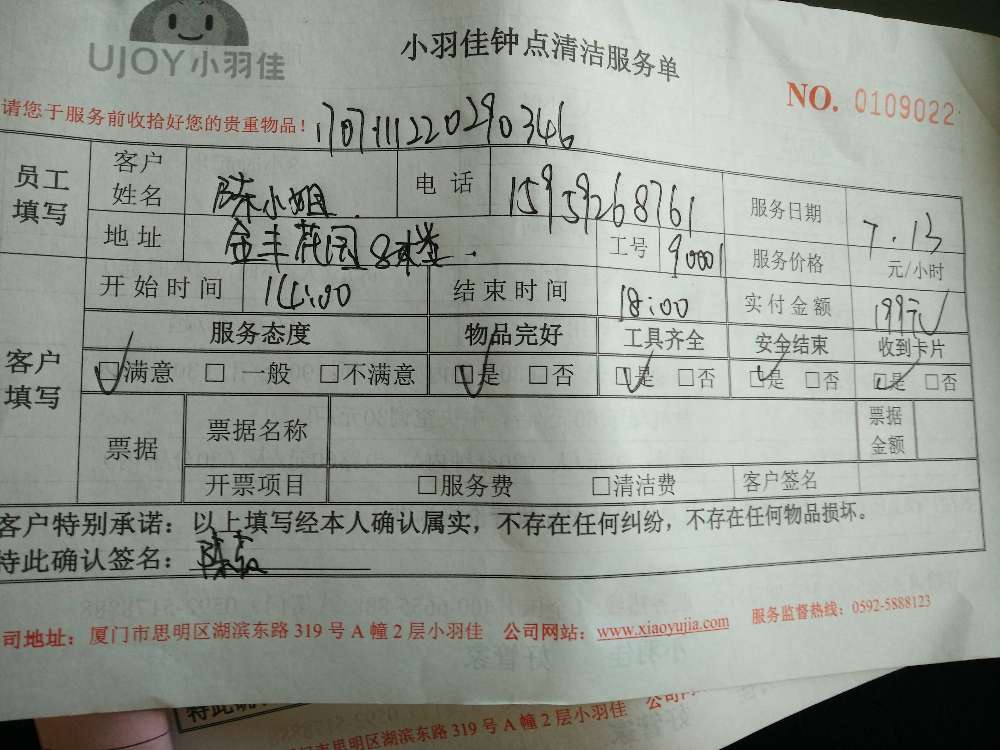 UJOY小羽佳
小羽佳钟点清洁服务单
NO. 0109022
请您于服务前收拾好您的贵重物品! 1707111220290346
员工填写 客户姓名 陈小姐 电话 15959268761 服务日期 7.13
地址 金丰花园 工号 90001 服务价格 元/小时
客户填写 开始时间 14:00 结束时间 18:00 实付金额 199元
服务态度 物品完好 工具齐全 安全结束 收到卡片
☑满意 □一般 □不满意 ☑是 □否 ☑是 □否 ☑是 □否 ☑是 □否
票据 票据名称 票据金额
开票项目 □服务费 □清洁费 客户签名
客户特别承诺：以上填写经本人确认属实，不存在任何纠纷，不存在任何物品损坏。
特此确认签名：陈
公司地址：厦门市思明区湖滨东路 319 号 A 幢 2 层小羽佳 公司网站：www.xiaoyujia.com 服务监督热线：0592-5888123
特此确
厦门市思明区湖滨东路 319 号 A 幢 2 层小羽佳 公司